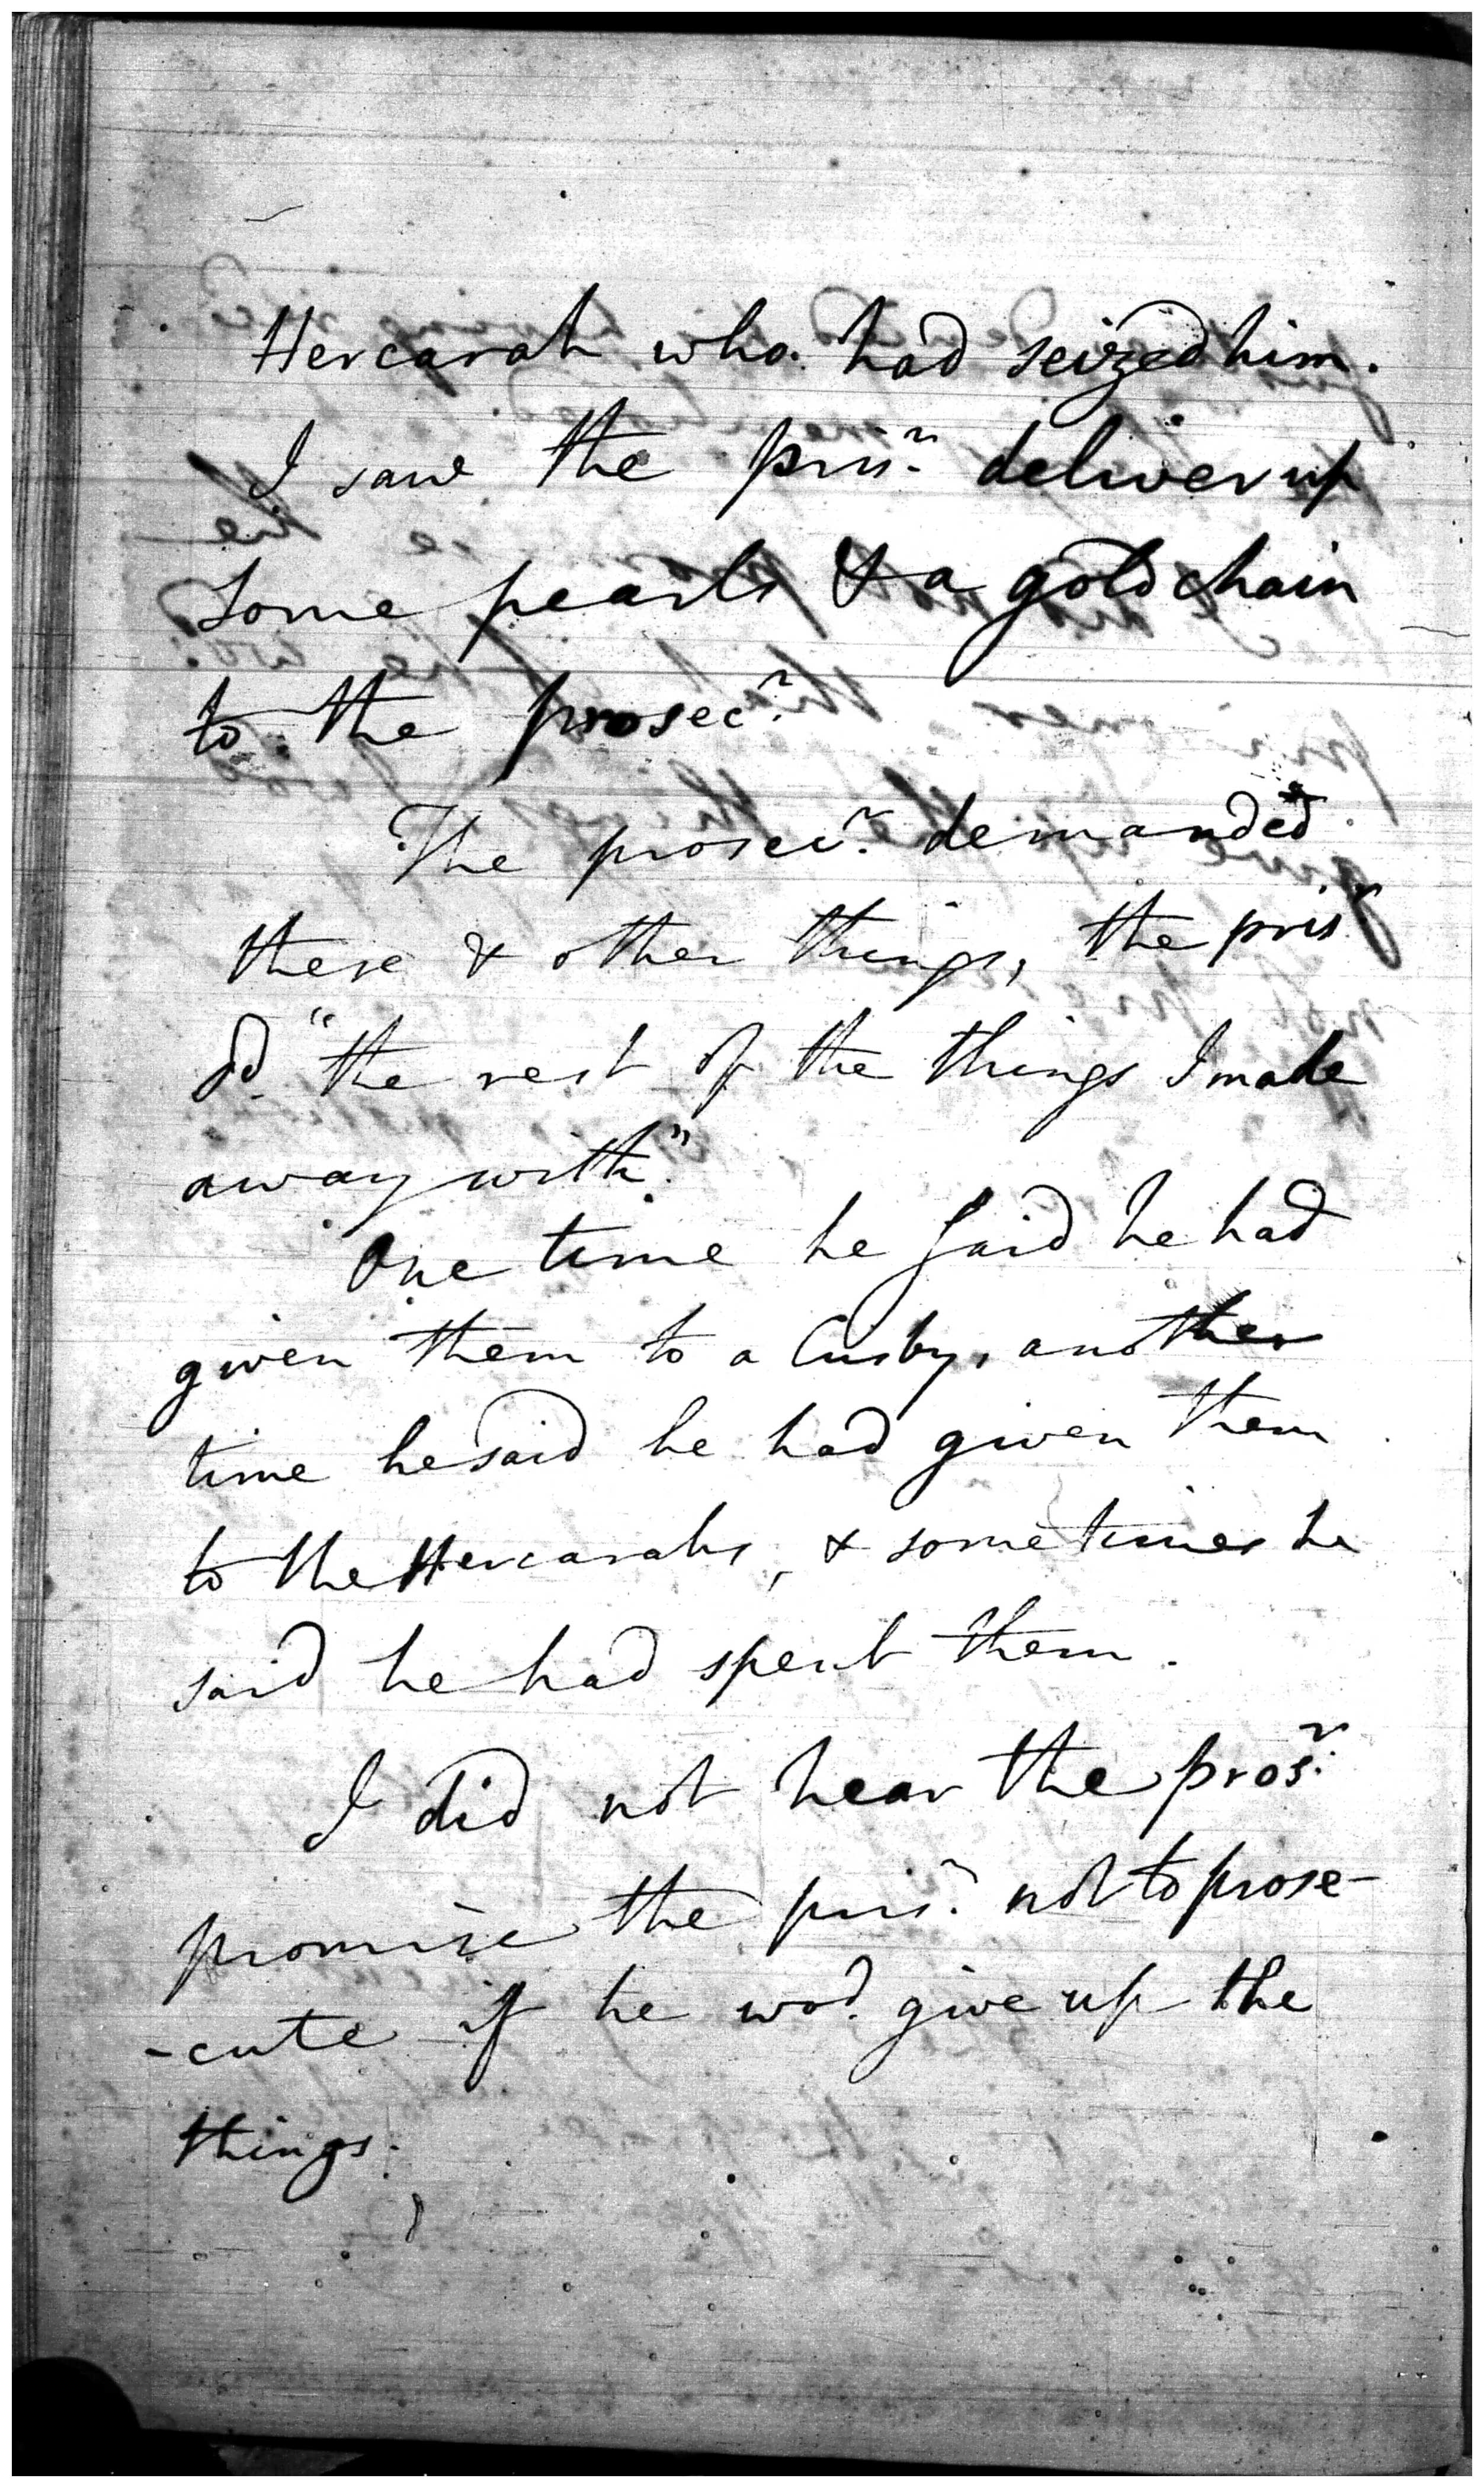 Hercarah who had seized him.
I saw the prisr. deliver up
some pearls & a gold chain
to the prosecr.
The prosecr. demanded
these & other things, the prisr.
sd. "the rest of the things I made
away with."
One time he said he had
given them to a Cusby, another
time he said he had given them
to the Hercarahs, & sometimes he
said he had spent them.
I did not hear the prosr.
promise the prisr. not to prose-
-cute if he wod. give up the
things.